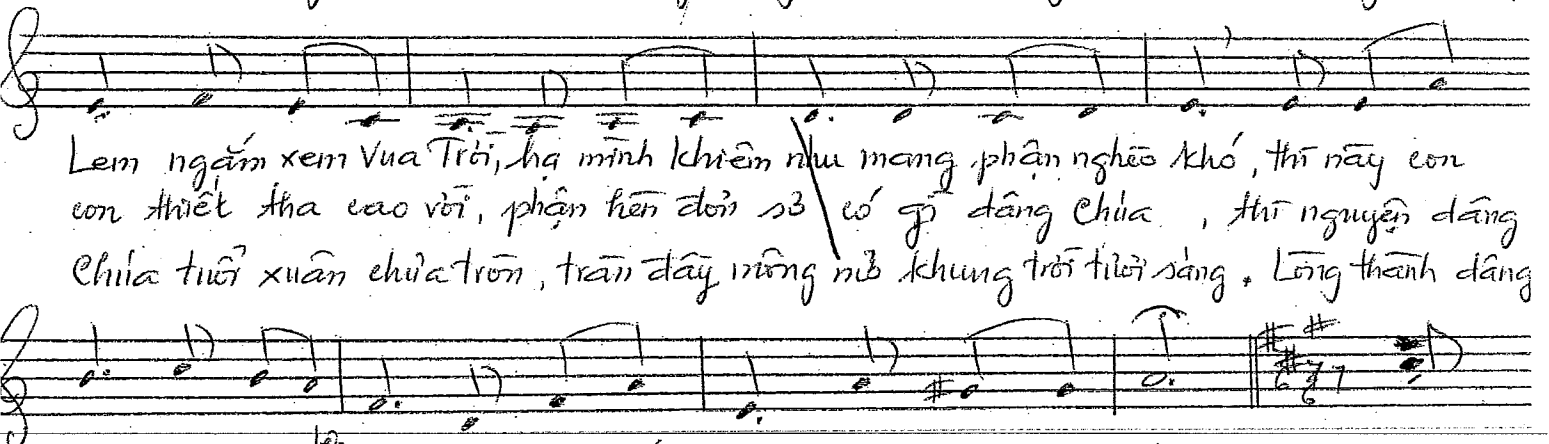 Lem ngắm xem Vua Trời, hạ mình khiêm như mang phận nghèo khó, thì này con
con thiết tha cao vời, phận hèn đơn sơ có gì dâng Chúa , thì nguyện dâng
Chúa tuổi xuân chưa tròn, tràn đầy mộng mơ khung trời tươi sáng. Lòng thành dâng